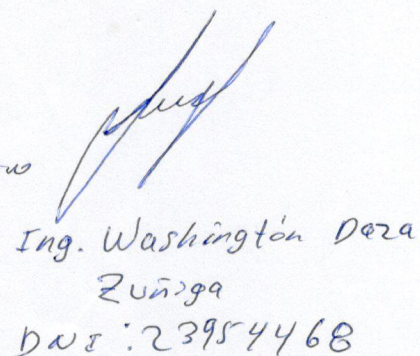 Ing. Washington Daza
Zuñiga
DNI: 23954468